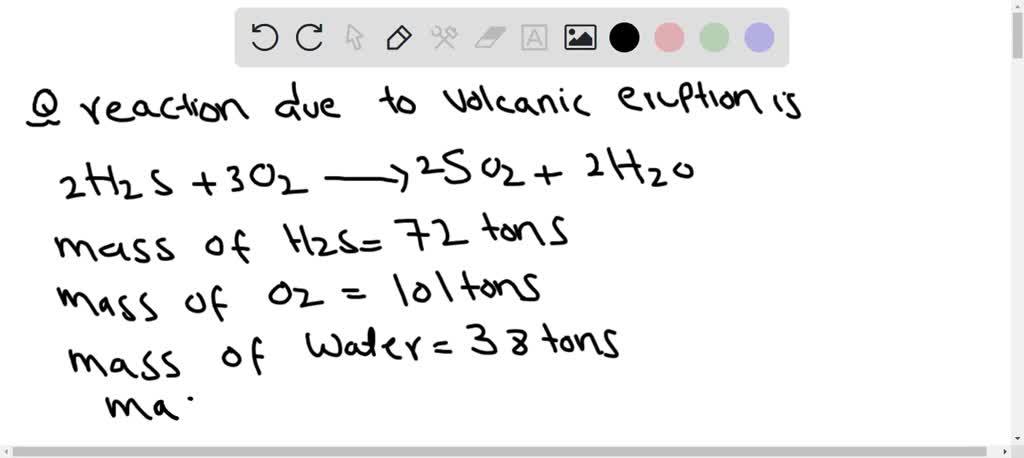 Q reaction due to volcanic eruption is
2H2S + 3O2 → 2SO2 + 2H2O
mass of H2S = 72 tons
mass of O2 = 101 tons
mass of water = 38 tons
ma